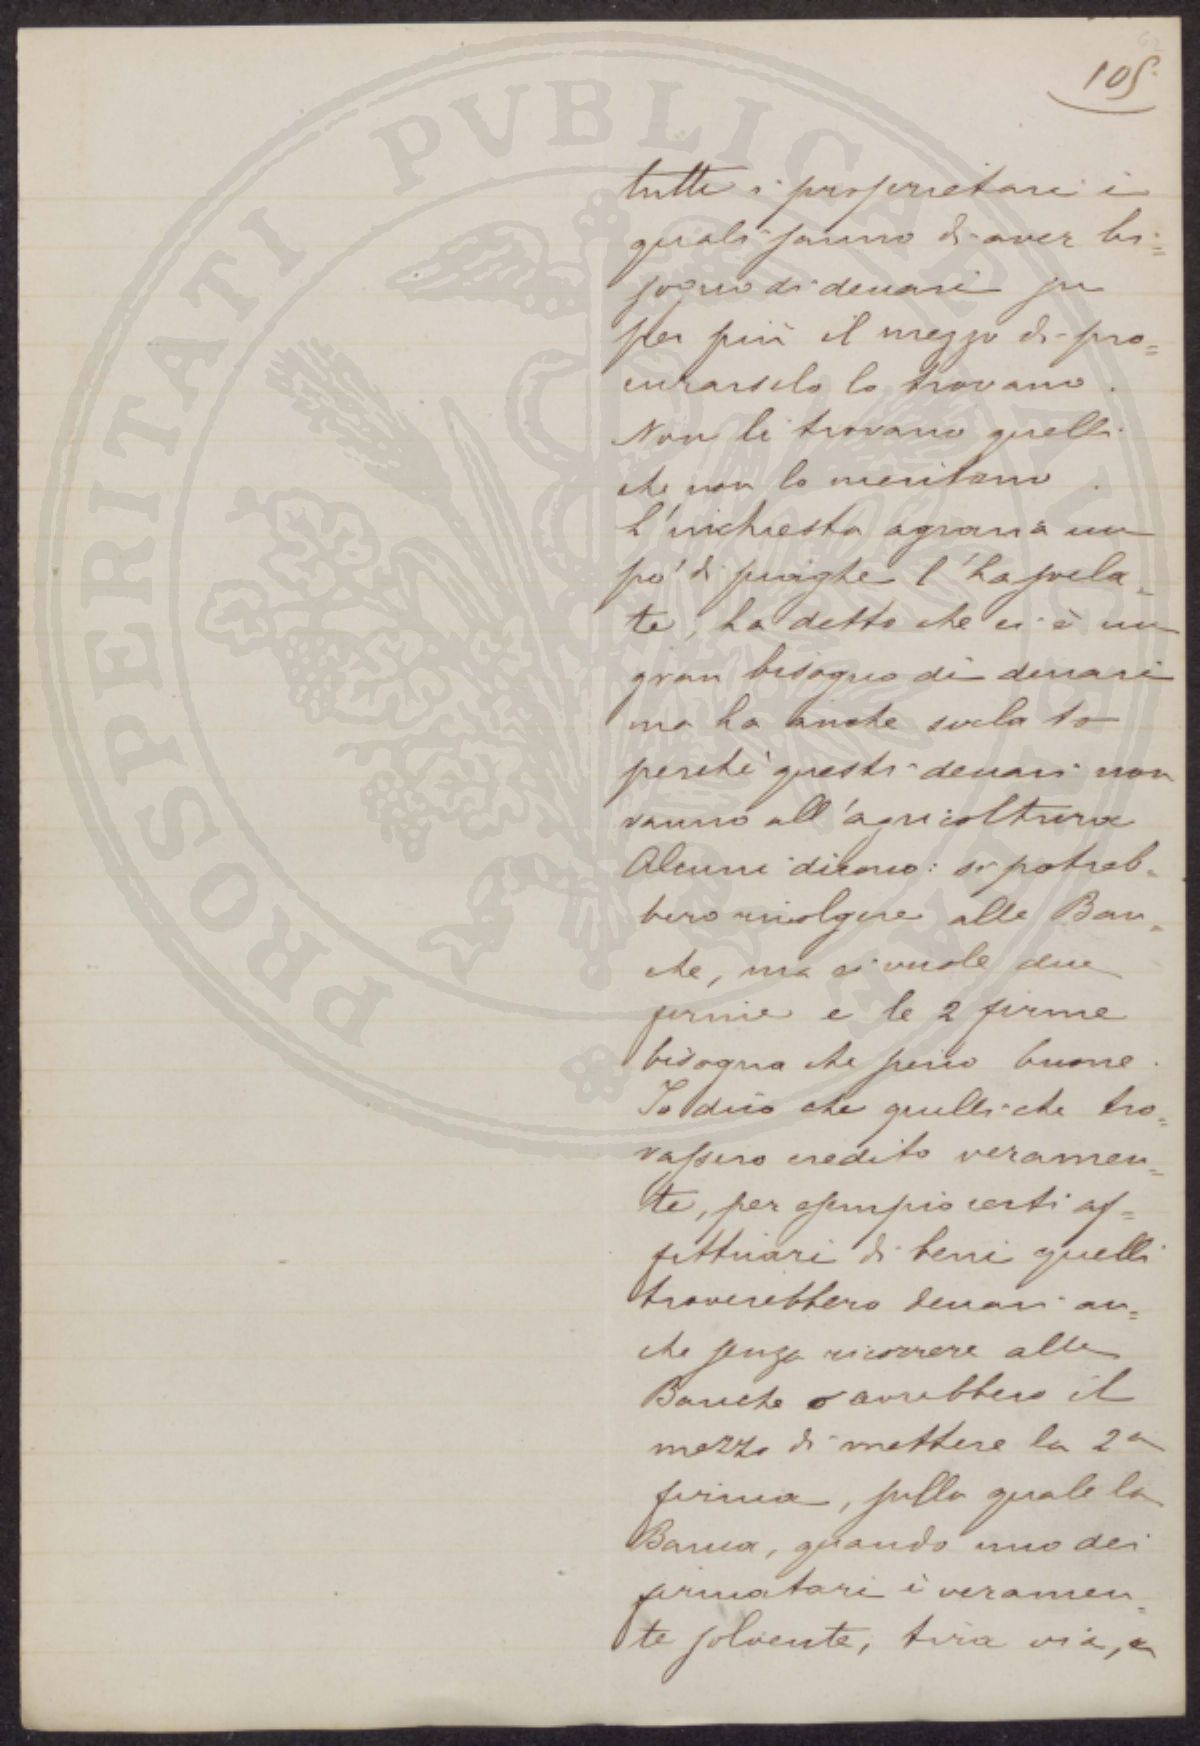 62
105.
tutti i proprietari i
quali sanno di aver bi=
sogno di denari
per più il mezzo di pro=
curarselo lo trovano.
Non li trovano quelli
che non lo meritano.
L'inchiesta agraria un
po' di piaghe l'ha svela=
te, ha detto che ci è un
gran bisogno di denari
ma ha anche svelato
perchè questi denari non
vanno all'agricoltura
Alcuni dicono: si potreb=
bero rivolgere alle Ban=
che, ma ci vuole due
firme e le 2 firme
bisogna che sieno buone.
Io dico che quelli che tro=
vassero credito veramen=
te, per esempio certi af=
fittuari di beni quelli
troverebbero denari an=
che senza ricorrere alle
Banche o avrebbero il
mezzo di mettere la 2a
firma, sulla quale la
Banca, quando uno dei
firmatari è veramen=
te solvente, tira via, e
PROSPERITATI PUBLICAE AUGENDAE